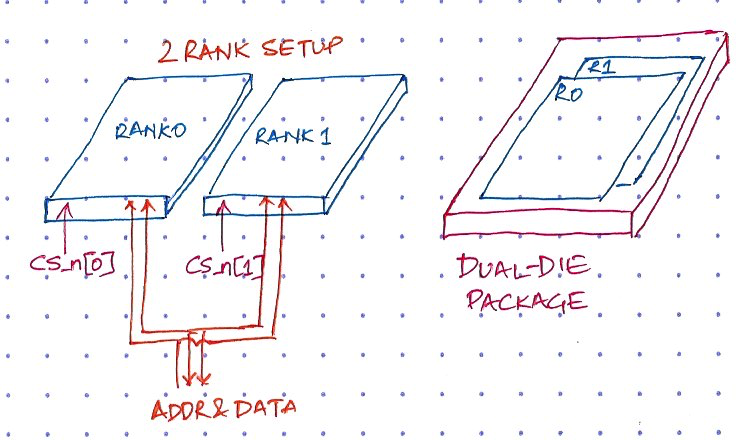 2 RANK SETUP
RANK0
RANK 1
CS_n[0]
CS_n[1]
ADDR & DATA
R1
R0
DUAL-DIE
PACKAGE